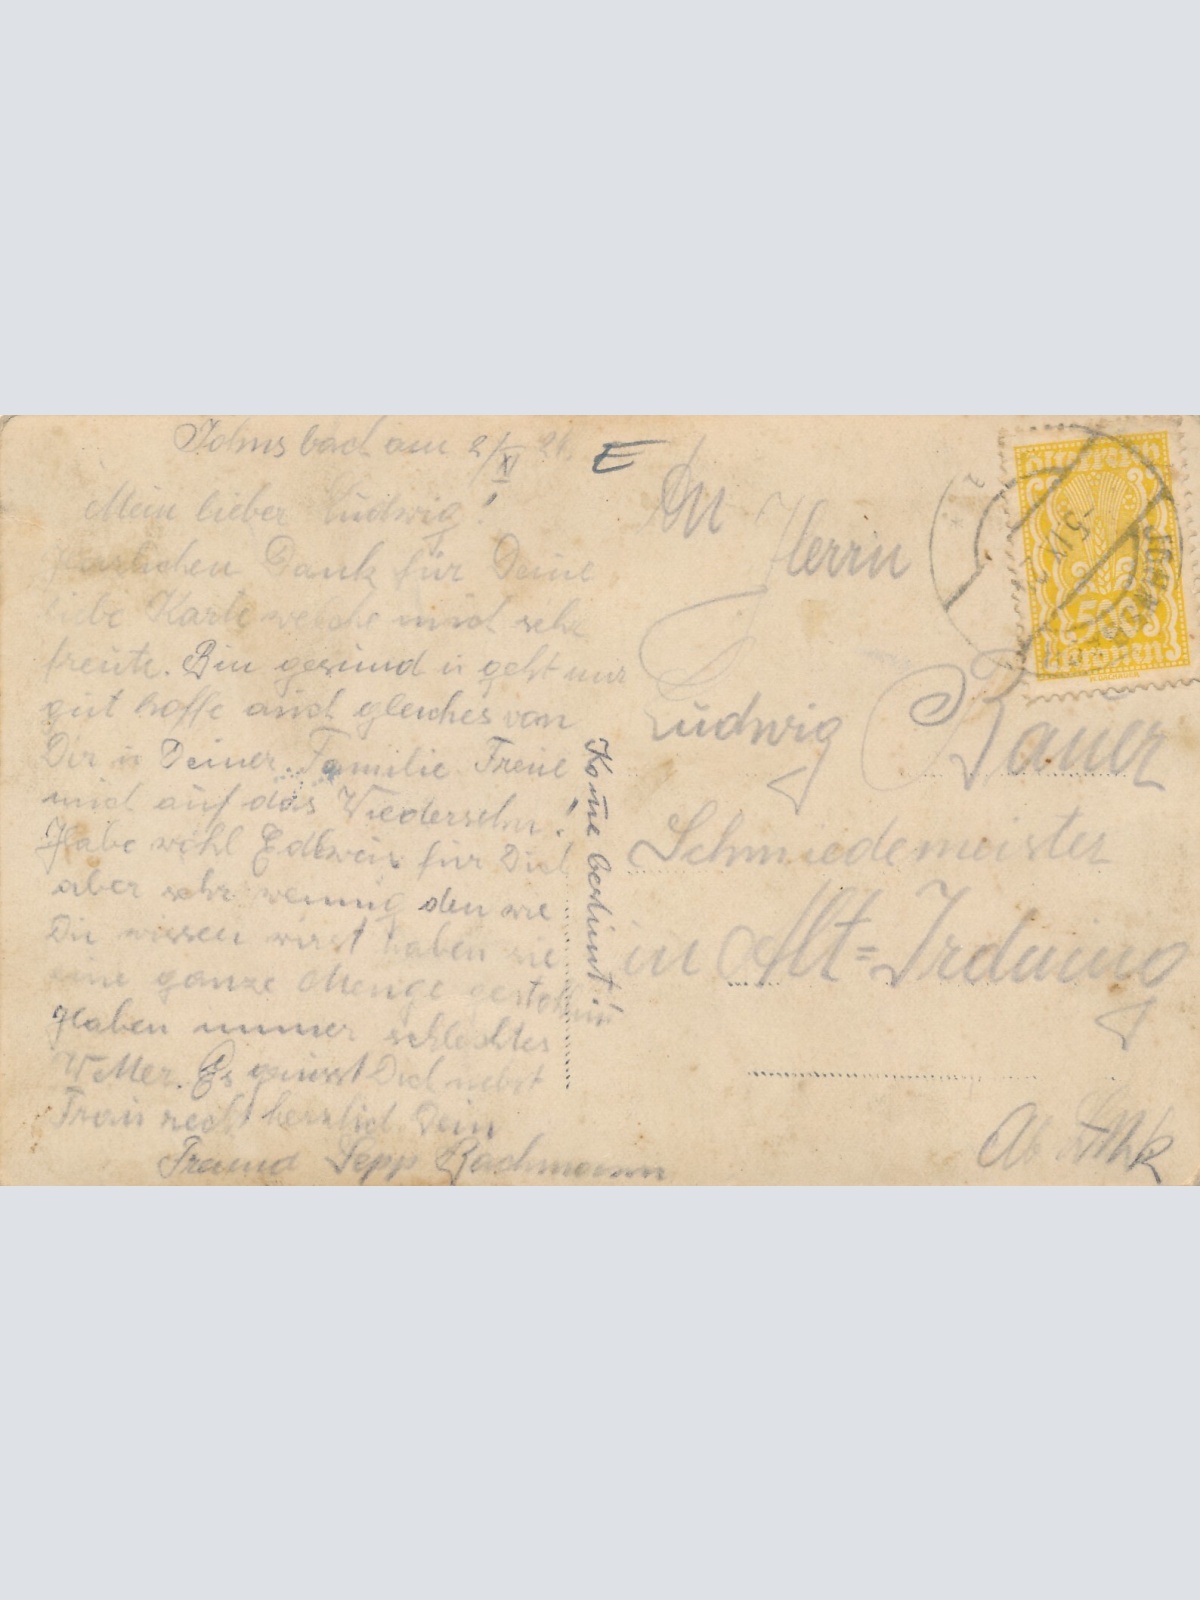 Johnsbach am 2/XI 24
E
Mein lieber Ludwig!
Herzlichen Dank für Deine
liebe Karte welche mich sehr
freute. Bin gesund u geht mir
gut hoffe auch gleiches von
Dir u Deiner Familie Freue
mich auf das Wiedersehn!
Habe wohl Edlweis für Dich
aber sehr wennig den wie
Du wissen wirst haben sie
eine ganze Menge gestohlen
Haben immer schlechtes
Wetter. Es grüsst Dich nebst
Frau recht herzlich Dein
Freund Sepp Bachmann
Kome bestimt!
An Herrn
Ludwig Bauer
Schmiedemeister
in Alt=Irdning
500
Kronen